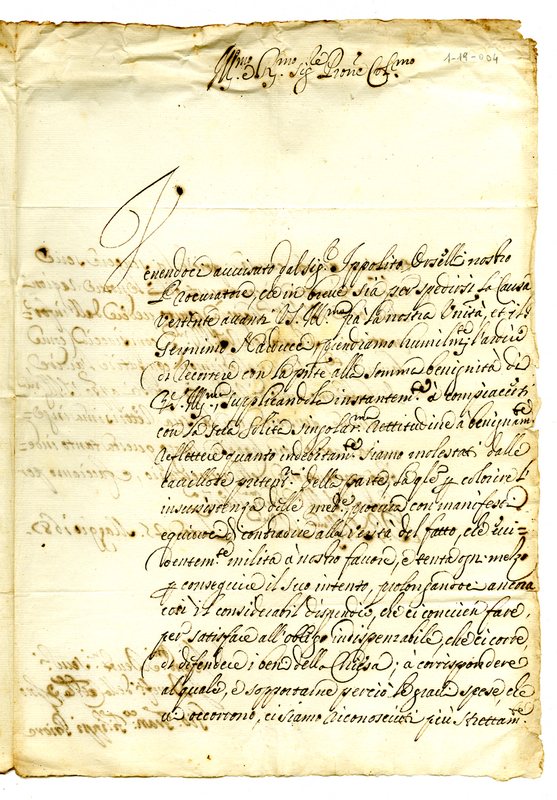 Ill.mo e R.mo Sig.re Prone Col.mo
1-19-004
Venendoci avvisato dal Sig.r Ippolito Orselli nostro
Procuratore, che in breve sia per spedirsi la Causa
vertente avanti VS. Ill.ma frà la nostra Unità, et il S.r
Geronimo prendiamo humilm.te l'ardire
di ricorrere con la p.nte alla somma benignità di
VS. Ill.ma, supplicandola instantem.te à compiacersi
con la sola solita singolar.ma rettitudine à benignam.te
riflettere quanto indebitam.te siamo molestati dalle
cavillose della parte, la q.le p colorire l'
insussistenza delle med.e, procura con manifesti
equivoci di contradire alla verità del fatto, che evi-
dentem.te milita à nostro favore, e tenta ogni mezzo
p conseguire il suo intento, prolongandoci ancora
così il considerabil dispendio, che ci convien fare,
per satisfare all'obligo indispensabile, che ci corre,
di difendere i beni della Chiesa; à corrispondere
al quale, e sopportarne perciò le gravi spese che
vi occorrono, ci siamo riconosciuti più strettam.te